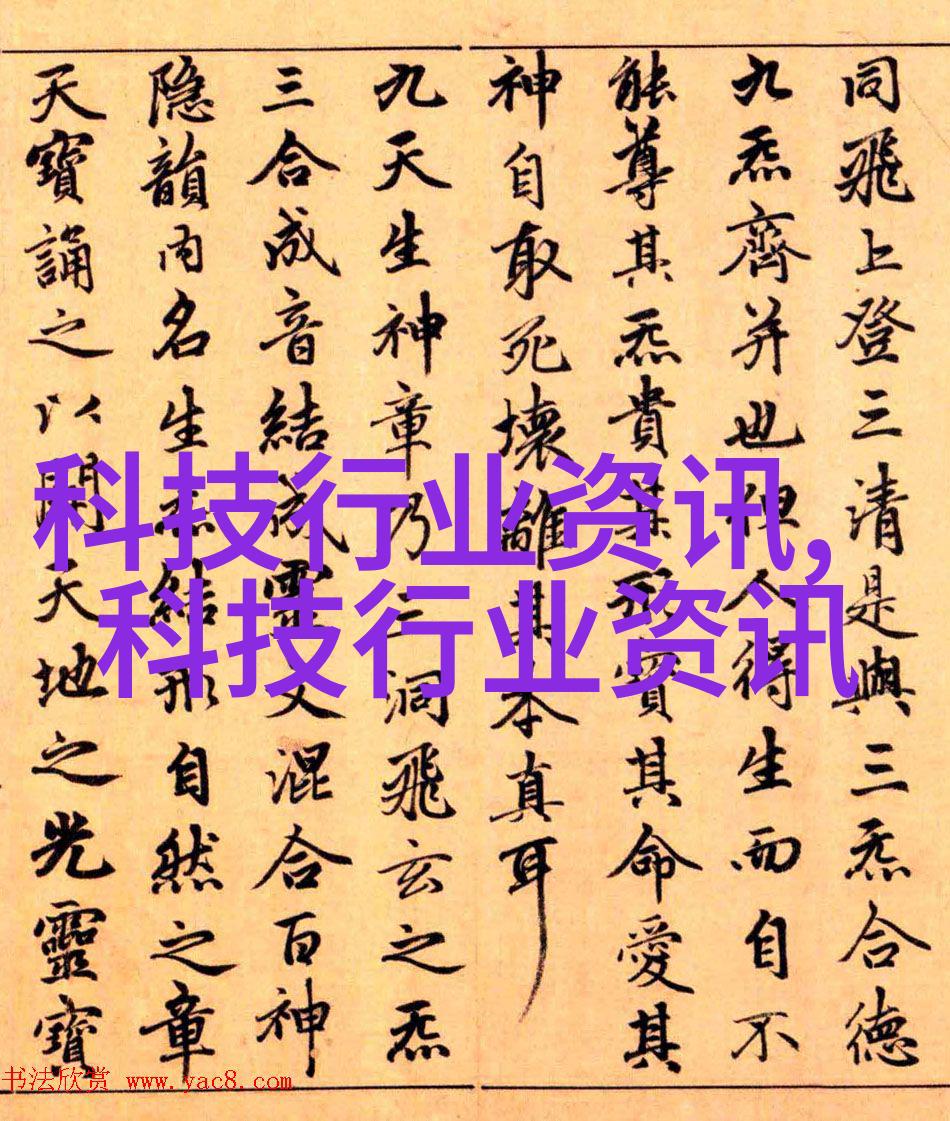 同飛上登三清是與三炁合德
九炁齊并也但人得生而自不
能尊其炁貴其形寶其命愛其
神自取死壞離其本真耳
九天生神章乃三洞飛玄之炁
三合成音結成靈文混合百神
隐韻内名生炁結形自然之章
天寶誦之以開天地之光靈寶
科技行业资讯,
科技行业资讯
书法欣赏 www.yac8.com